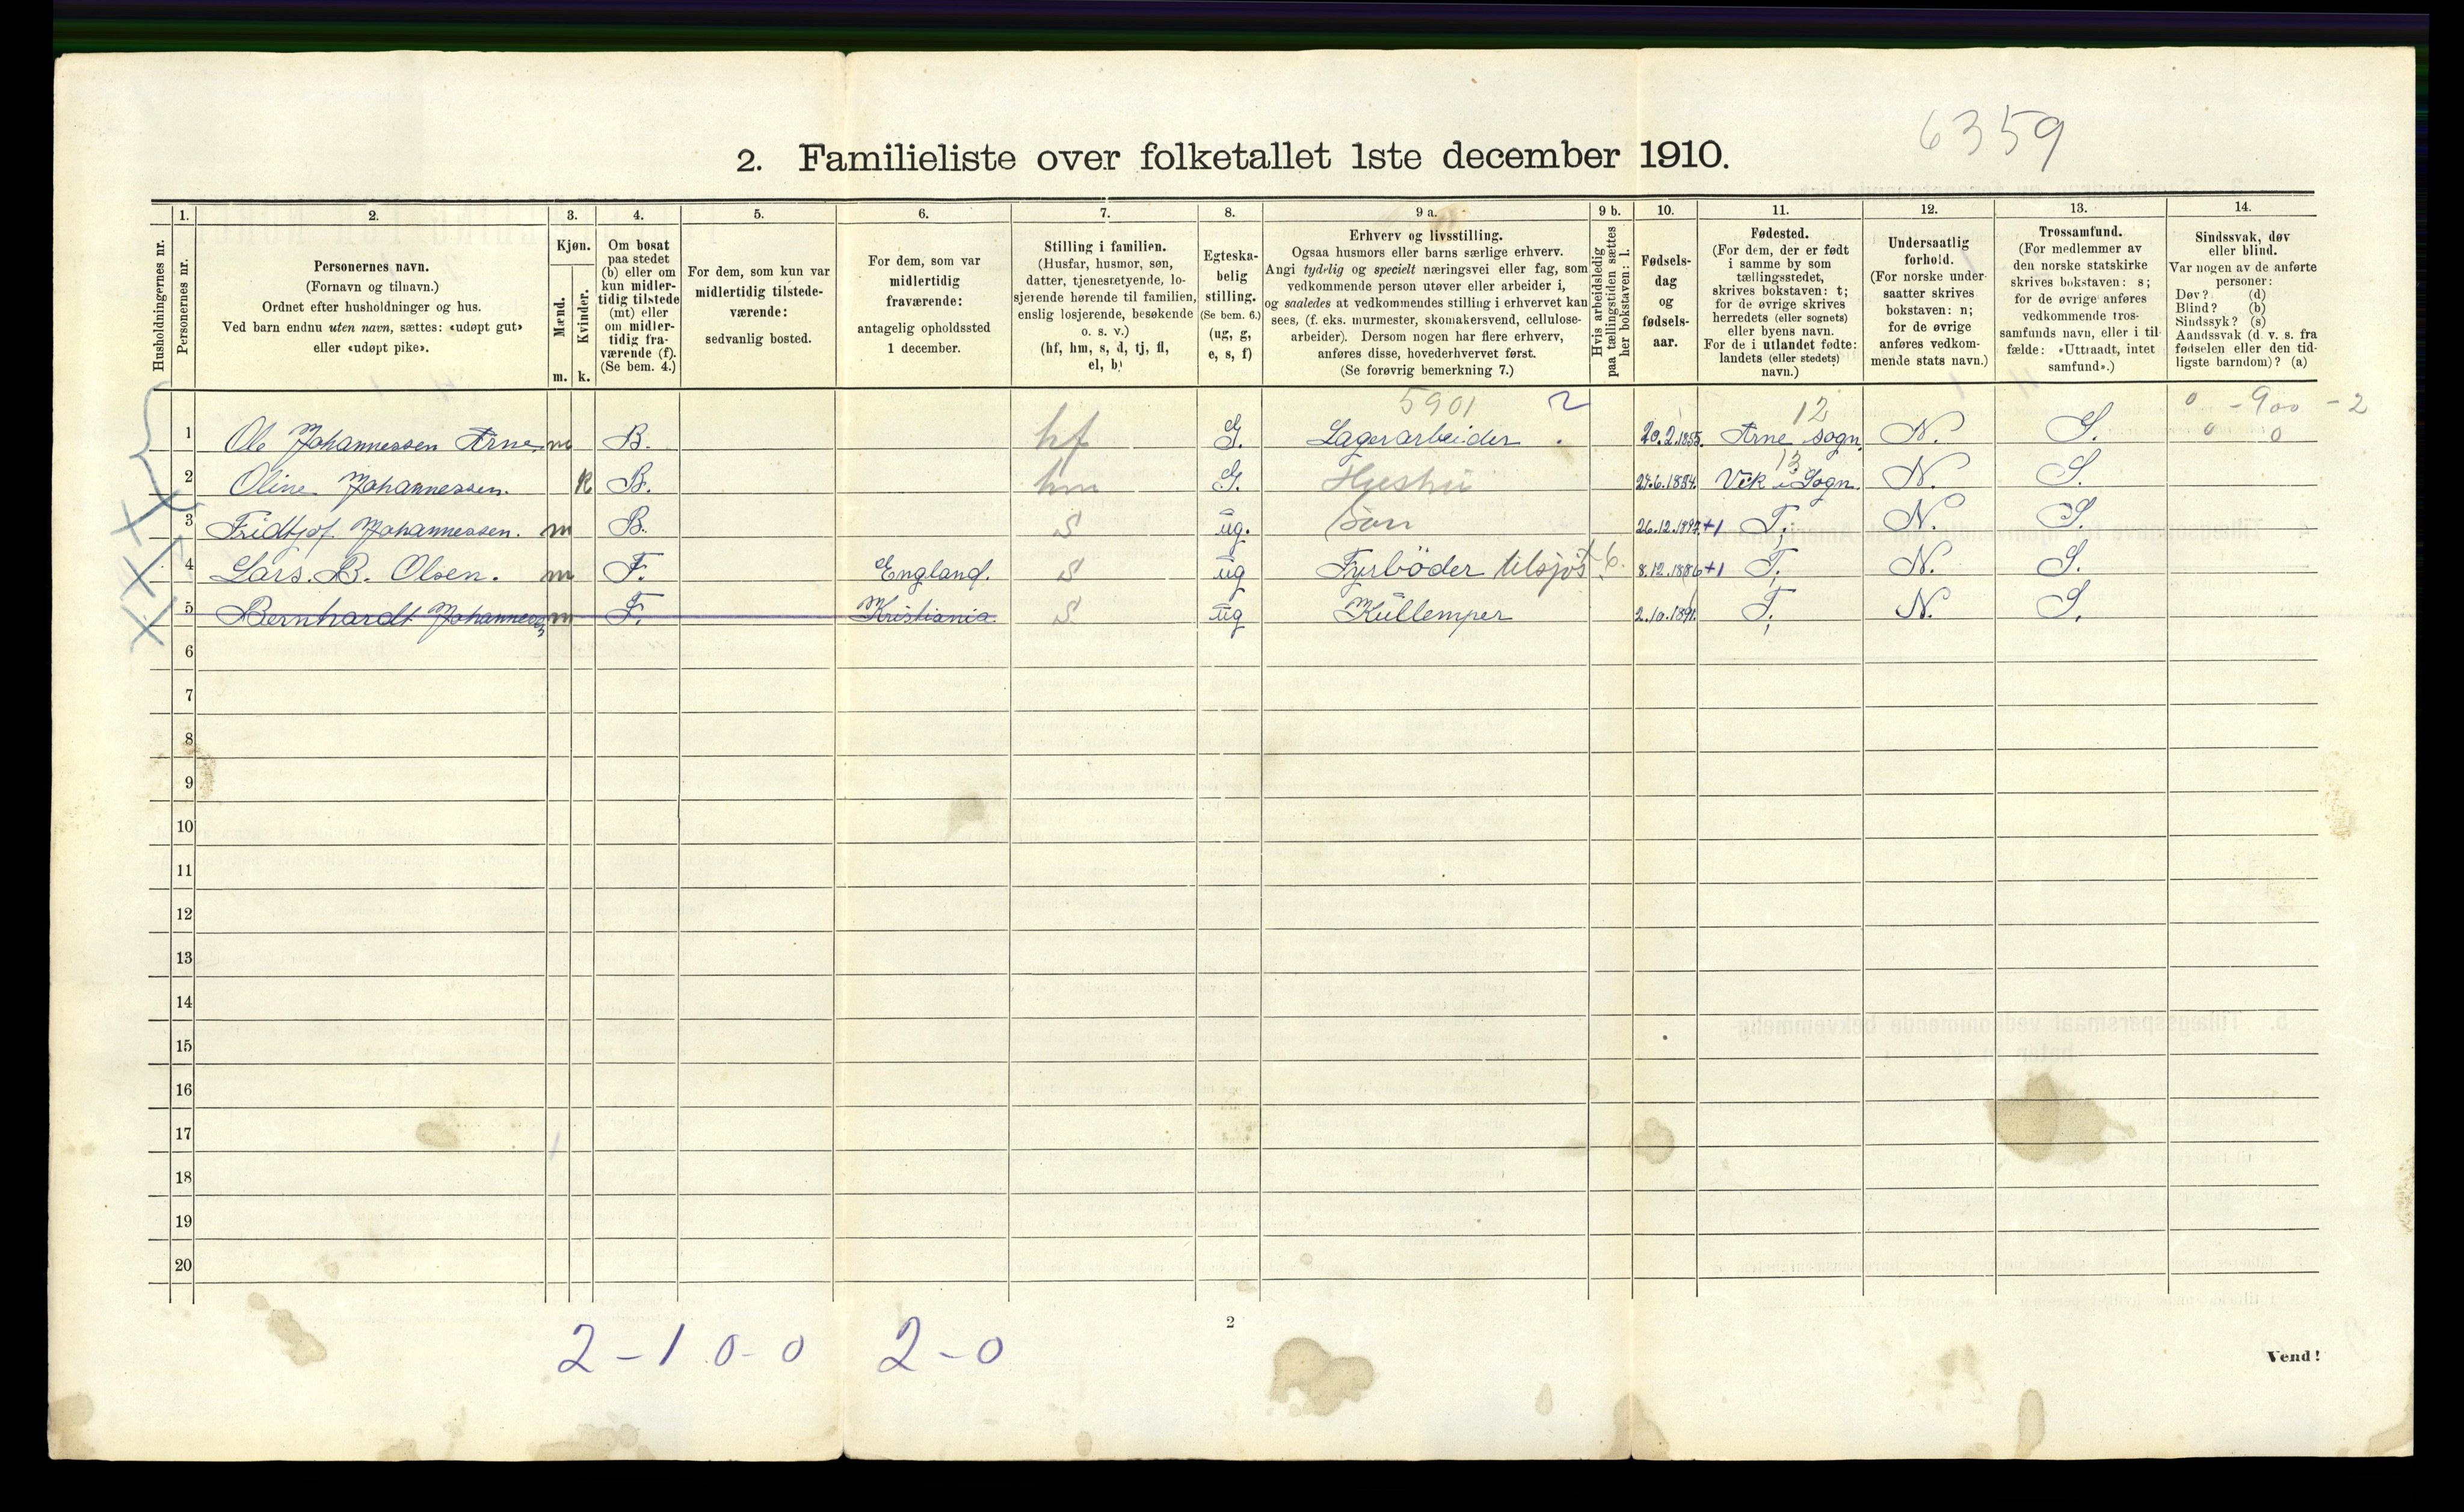 6359
2. Familieliste over folketallet 1ste december 1910.
Husholdningernes nr.
1. Personernes nr.
2. Personernes navn.
(Fornavn og tilnavn.)
Ordnet efter husholdninger og hus.
Ved barn endnu uten navn, sættes: «udøpt gut»
eller «udøpt pike».
3. Kjøn.
Mænd. Kvinder.
m. k.
4. Om bosat
paa stedet
(b) eller om
kun midler-
tidig tilstede
(mt) eller
om midler-
tidig fra-
værende (f).
(Se bem. 4.)
5. For dem, som kun var
midlertidig tilstede-
værende:
sedvanlig bosted.
6. For dem, som var
midlertidig
fraværende:
antagelig opholdssted
1 december.
7. Stilling i familien.
(Husfar, husmor, søn,
datter, tjenestetyende, lo-
sjerende hørende til familien,
enslig losjerende, besøkende
o. s. v.)
(hf, hm, s, d, tj, fl,
el, b)
8. Egteska-
belig
stilling.
(Se bem. 6.)
(ug, g,
e, s, f)
9 a. Erhverv og livsstilling.
Ogsaa husmors eller barns særlige erhverv.
Angi tydelig og specielt næringsvei eller fag, som
vedkommende person utøver eller arbeider i,
og saaledes at vedkommendes stilling i erhvervet kan
sees, (f. eks. murmester, skomakersvend, cellulose-
arbeider). Dersom nogen har flere erhverv,
anføres disse, hovederhvervet først.
(Se forøvrig bemerkning 7.)
9 b. Hvis arbeidsledig
paa tællingstiden sættes
her bokstaven: l.
10. Fødsels-
dag
og
fødsels-
aar.
11. Fødested.
(For dem, der er født
i samme by som
tællingsstedet,
skrives bokstaven: t;
for de øvrige skrives
herredets (eller sognets)
eller byens navn.
For de i utlandet fødte:
landets (eller stedets)
navn.)
12. Undersaatlig
forhold.
(For norske under-
saatter skrives
bokstaven: n;
for de øvrige
anføres vedkom-
mende stats navn.)
13. Trossamfund.
(For medlemmer av
den norske statskirke
skrives bokstaven: s;
for de øvrige anføres
vedkommende tros-
samfunds navn, eller i til-
fælde: «Uttraadt, intet
samfund».)
14. Sindssvak, døv
eller blind.
Var nogen av de anførte
personer:
Døv? (d)
Blind? (b)
Sindssyk? (s)
Aandssvak (d. v. s. fra
fødselen eller den tid-
ligste barndom)? (a)
5901 2 12 0 - 900 - 2
1 Ole Johannessen Arne. m B. hf G. Lagerarbeider. 20.2.1855. Arne sogn. N. S. 0 0
13
2 Oline Johannessen. K B. hm G. Hjeshu 27.6.1854. Vik i Sogn. N. S.
3 Fridtjof Johannessen. m B. S ug. Søn 26.12.1897 +1 T; N. S.
4 Lars. B. Olsen. m F. England. S ug Fyrbøder tilsjøs 6. 8.12.1886 +1 T, N. S.
5 Bernhardt Johannessen m F. Kristiania. S ug Kullemper 2.10.1891. T, N. S.
6
7
8
9
10
11
12
13
14
15
16
17
18
19
20
2 - 1 0 - 0 2 - 0
2
Vend!